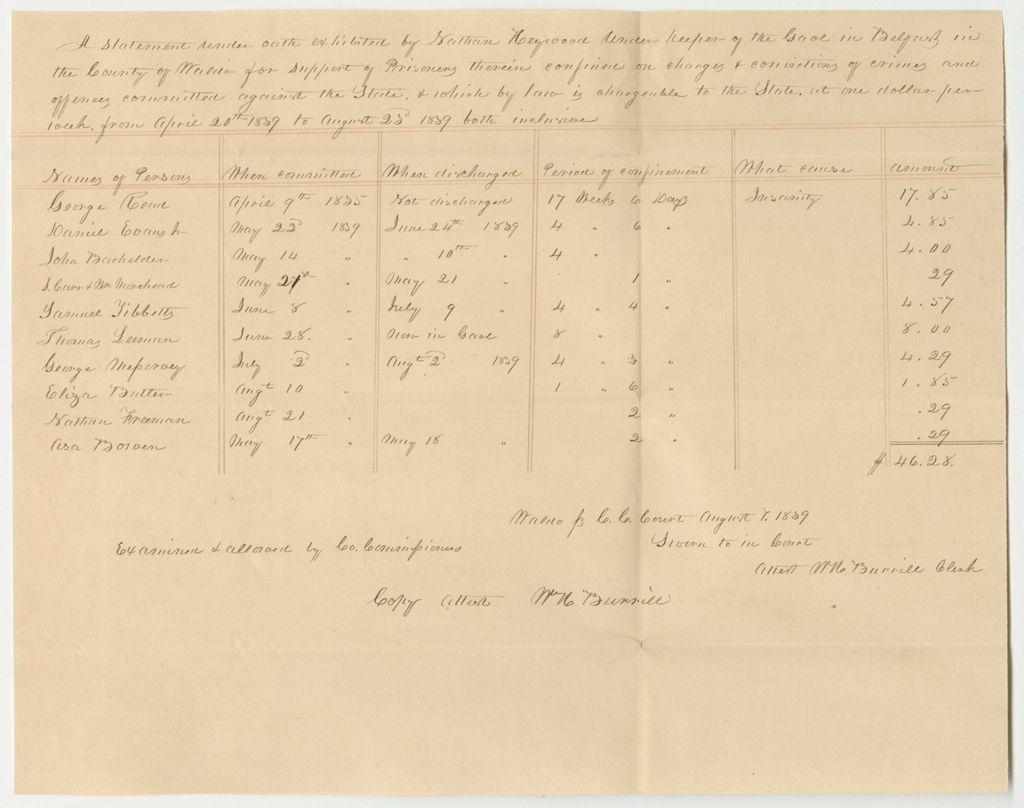 A Statement under oath exhibited by Nathan Heywood under keeper of the Gaol in Belfast in
the County of Waldo for support of Prisoners therein confined on charges & convictions of crimes and
offences committed against the State, & which by law is chargeable to the State, at one dollar per
week, from April 20th 1839 to August 23d 1839 both inclusive
Names of Persons When committed When discharged Period of confinement What cause amount
George Read April 9th 1835 Not discharged 17 Weeks 6 Days Insanity 17.85
Daniel Evans Jr May 22d 1839 June 24th 1839 4 " 6 " 4.85
John Bachelder May 14 " " 10th " 4 " 4.00
J. Carr & Wm Morehead May 21st " May 21 " 1 " 29
Samuel Tibbetts June 8 " July 9 " 4 " 4 " 4.57
Thomas Leeman June 28. " Now in Gaol 8 " 8.00
George July 2d " Augt 2d 1839 4 " 3 " 4.29
Eliza Butter Augt 10 " 1 " 6 " 1.85
Nathan Freeman Augt 21 " 2 " .29
Asa Bowen May 17th " May 18 " 2 " .29
$ 46.28.
Waldo ss C. C. Court August T. 1839
Examined & allowed by Co. Commissioners Sworn to in Court
Attest Wm H Burrill Clerk
Copy Attest Wm H Burrill